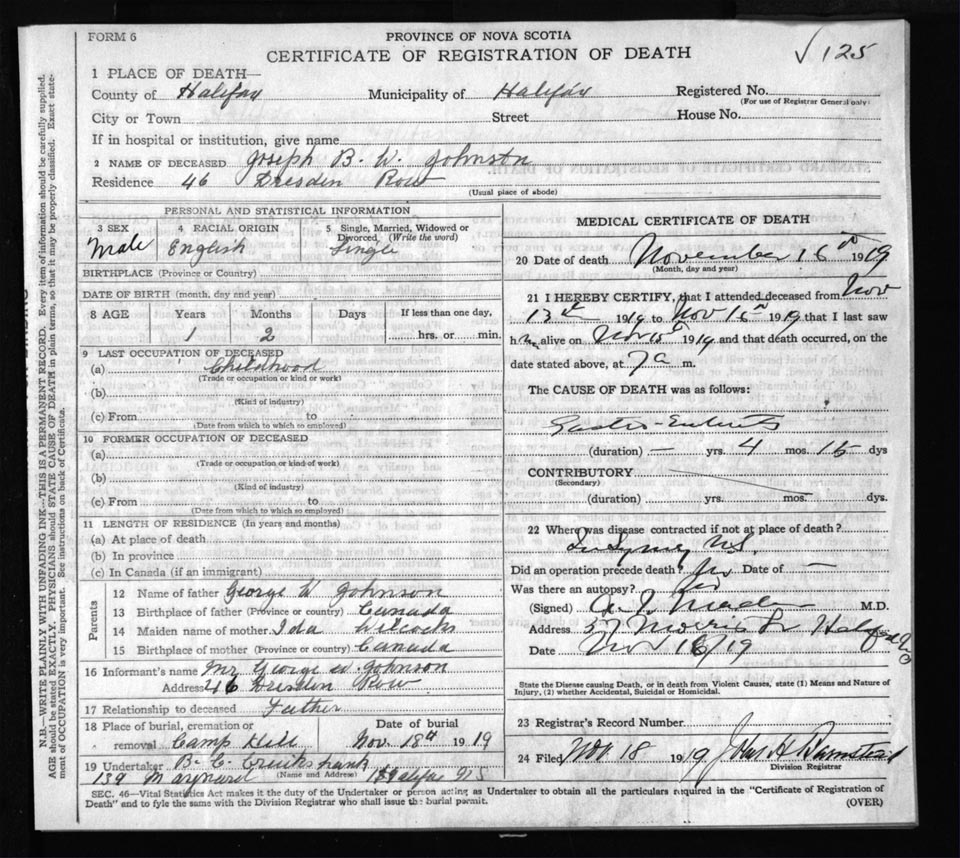 FORM 6
PROVINCE OF NOVA SCOTIA
CERTIFICATE OF REGISTRATION OF DEATH
√ 125
1 PLACE OF DEATH—
County of Halifax Municipality of Halifax Registered No.
(For use of Registrar General only)
City or Town Street House No.
If in hospital or institution, give name
2 NAME OF DECEASED Joseph B. W. Johnston
Residence 46 Dresden Row
(Usual place of abode)
PERSONAL AND STATISTICAL INFORMATION
3 SEX 4 RACIAL ORIGIN 5 Single, Married, Widowed or Divorced. (Write the word)
Male English Single
BIRTHPLACE (Province or Country)
DATE OF BIRTH (month, day and year)
8 AGE Years Months Days If less than one day,
1 2 hrs. or min.
9 LAST OCCUPATION OF DECEASED
(a) Childhood
(Trade or occupation or kind or work)
(b)
(Kind of industry)
(c) From to
(Date from which to which so employed)
10 FORMER OCCUPATION OF DECEASED
(a)
(Trade or occupation or kind of work)
(b)
(Kind of industry)
(c) From to
(Date from which to which so employed)
11 LENGTH OF RESIDENCE (In years and months)
(a) At place of death
(b) In province
(c) In Canada (if an immigrant)
Parents
12 Name of father George W Johnson
13 Birthplace of father (Province or country) Canada
14 Maiden name of mother Ida Wilcocks
15 Birthplace of mother (Province or country) Canada
16 Informant's name Mr George W. Johnson
Address 46 Dresden Row
17 Relationship to deceased Father
18 Place of burial, cremation or Date of burial
removal Camp Hill Nov. 18th 1919
19 Undertaker B. C. Cruikshank
(Name and Address)
139 Maynard Halifax NS
MEDICAL CERTIFICATE OF DEATH
20 Date of death November 16th 1919
(Month, day and year)
21 I HEREBY CERTIFY, that I attended deceased from Nov
13th 1919 to Nov 15th 1919 that I last saw
him alive on Nov 15th 1919 and that death occurred, on the
date stated above, at 7 a m.
The CAUSE OF DEATH was as follows:
Gastro-Enteritis
(duration) — yrs. 4 mos. 15 dys
CONTRIBUTORY
(Secondary)
(duration) yrs. mos. dys.
22 Where was disease contracted if not at place of death?
In Sydney N.S.
Did an operation precede death? Date of —
Was there an autopsy?
(Signed) M.D.
Address 37 Morris St Halifax N.S
Date Nov 16/19
State the Disease causing Death, or in death from Violent Causes, state (1) Means and Nature of
Injury, (2) whether Accidental, Suicidal or Homicidal.
23 Registrar's Record Number
24 Filed Nov 18 1919 John H Barnstead
Division Registrar
SEC. 46—Vital Statistics Act makes it the duty of the Undertaker or person acting as Undertaker to obtain all the particulars required in the "Certificate of Registration of
Death" and to fyle the same with the Division Registrar who shall issue the burial permit. (OVER)
N.B.—WRITE PLAINLY WITH UNFADING INK—THIS IS A PERMANENT RECORD. Every item of information should be carefully supplied.
AGE should be stated EXACTLY. PHYSICIANS should STATE CAUSE OF DEATH in plain terms, so that it may be properly classified. Exact state-
ment of OCCUPATION is very important. See instructions on back of Certificate.